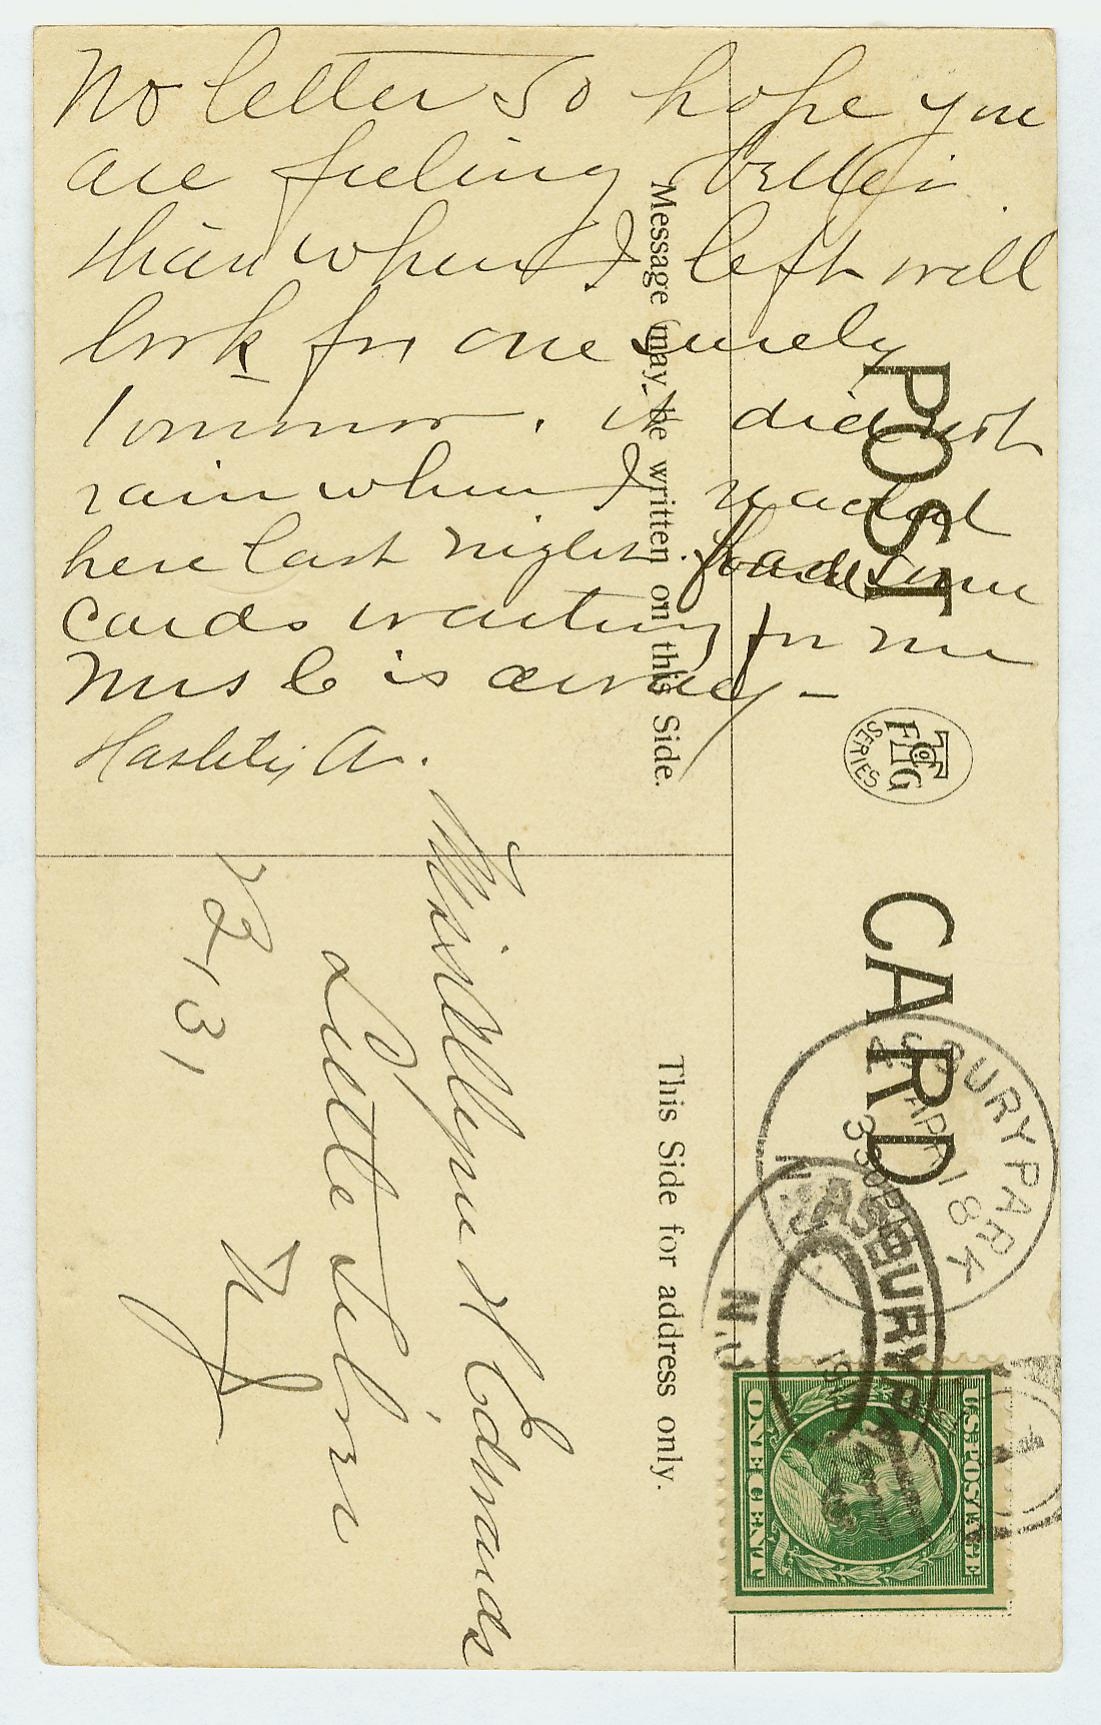 No letter so hope you
are feeling better
than when I left will
look for one surely
tomorrow. it did not
rain when I reached
here last night. found some
cards waiting for me
Mrs C is away –
Hastily A.
Message may be written on this Side.
POST CARD
F T & Co G
SERIES
This Side for address only.
Miss Allyne H Edwards
Little Silver
NJ
ASBURY PARK
APR 18
330 PM
N.J.
ASBURY PARK
N.J.
U.S. POSTAGE
ONE CENT